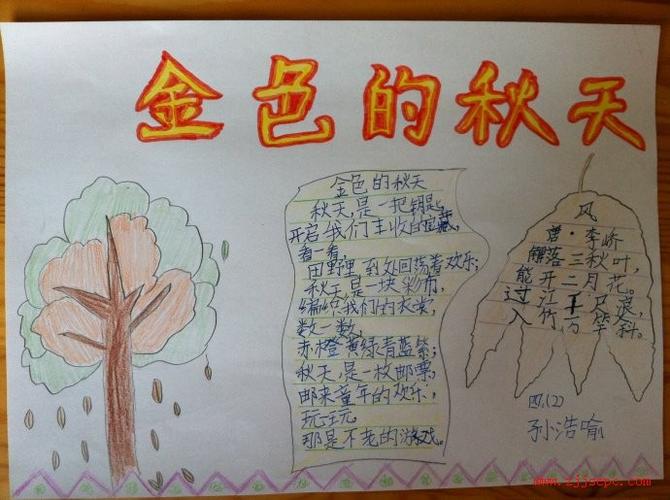 金色的秋天
金色的秋天
秋天,是一把钥匙,
开启我们丰收的宝藏,
看一看,
田野里到处回荡着欢乐;
秋天是一块彩布,
编织我们的衣裳,
数一数,
赤橙黄绿青蓝紫;
秋天,是一枚邮票,
邮来童年的欢乐,
玩一玩,
那是不老的游戏。
风
李峤
解落三秋叶,
能开二月花。
过江千尺浪,
入竹万竿斜。
四(2)
孙浩喻
www.zjjsepc.com